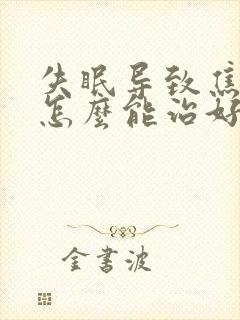 失眠导致焦
怎麽能治好
金書波